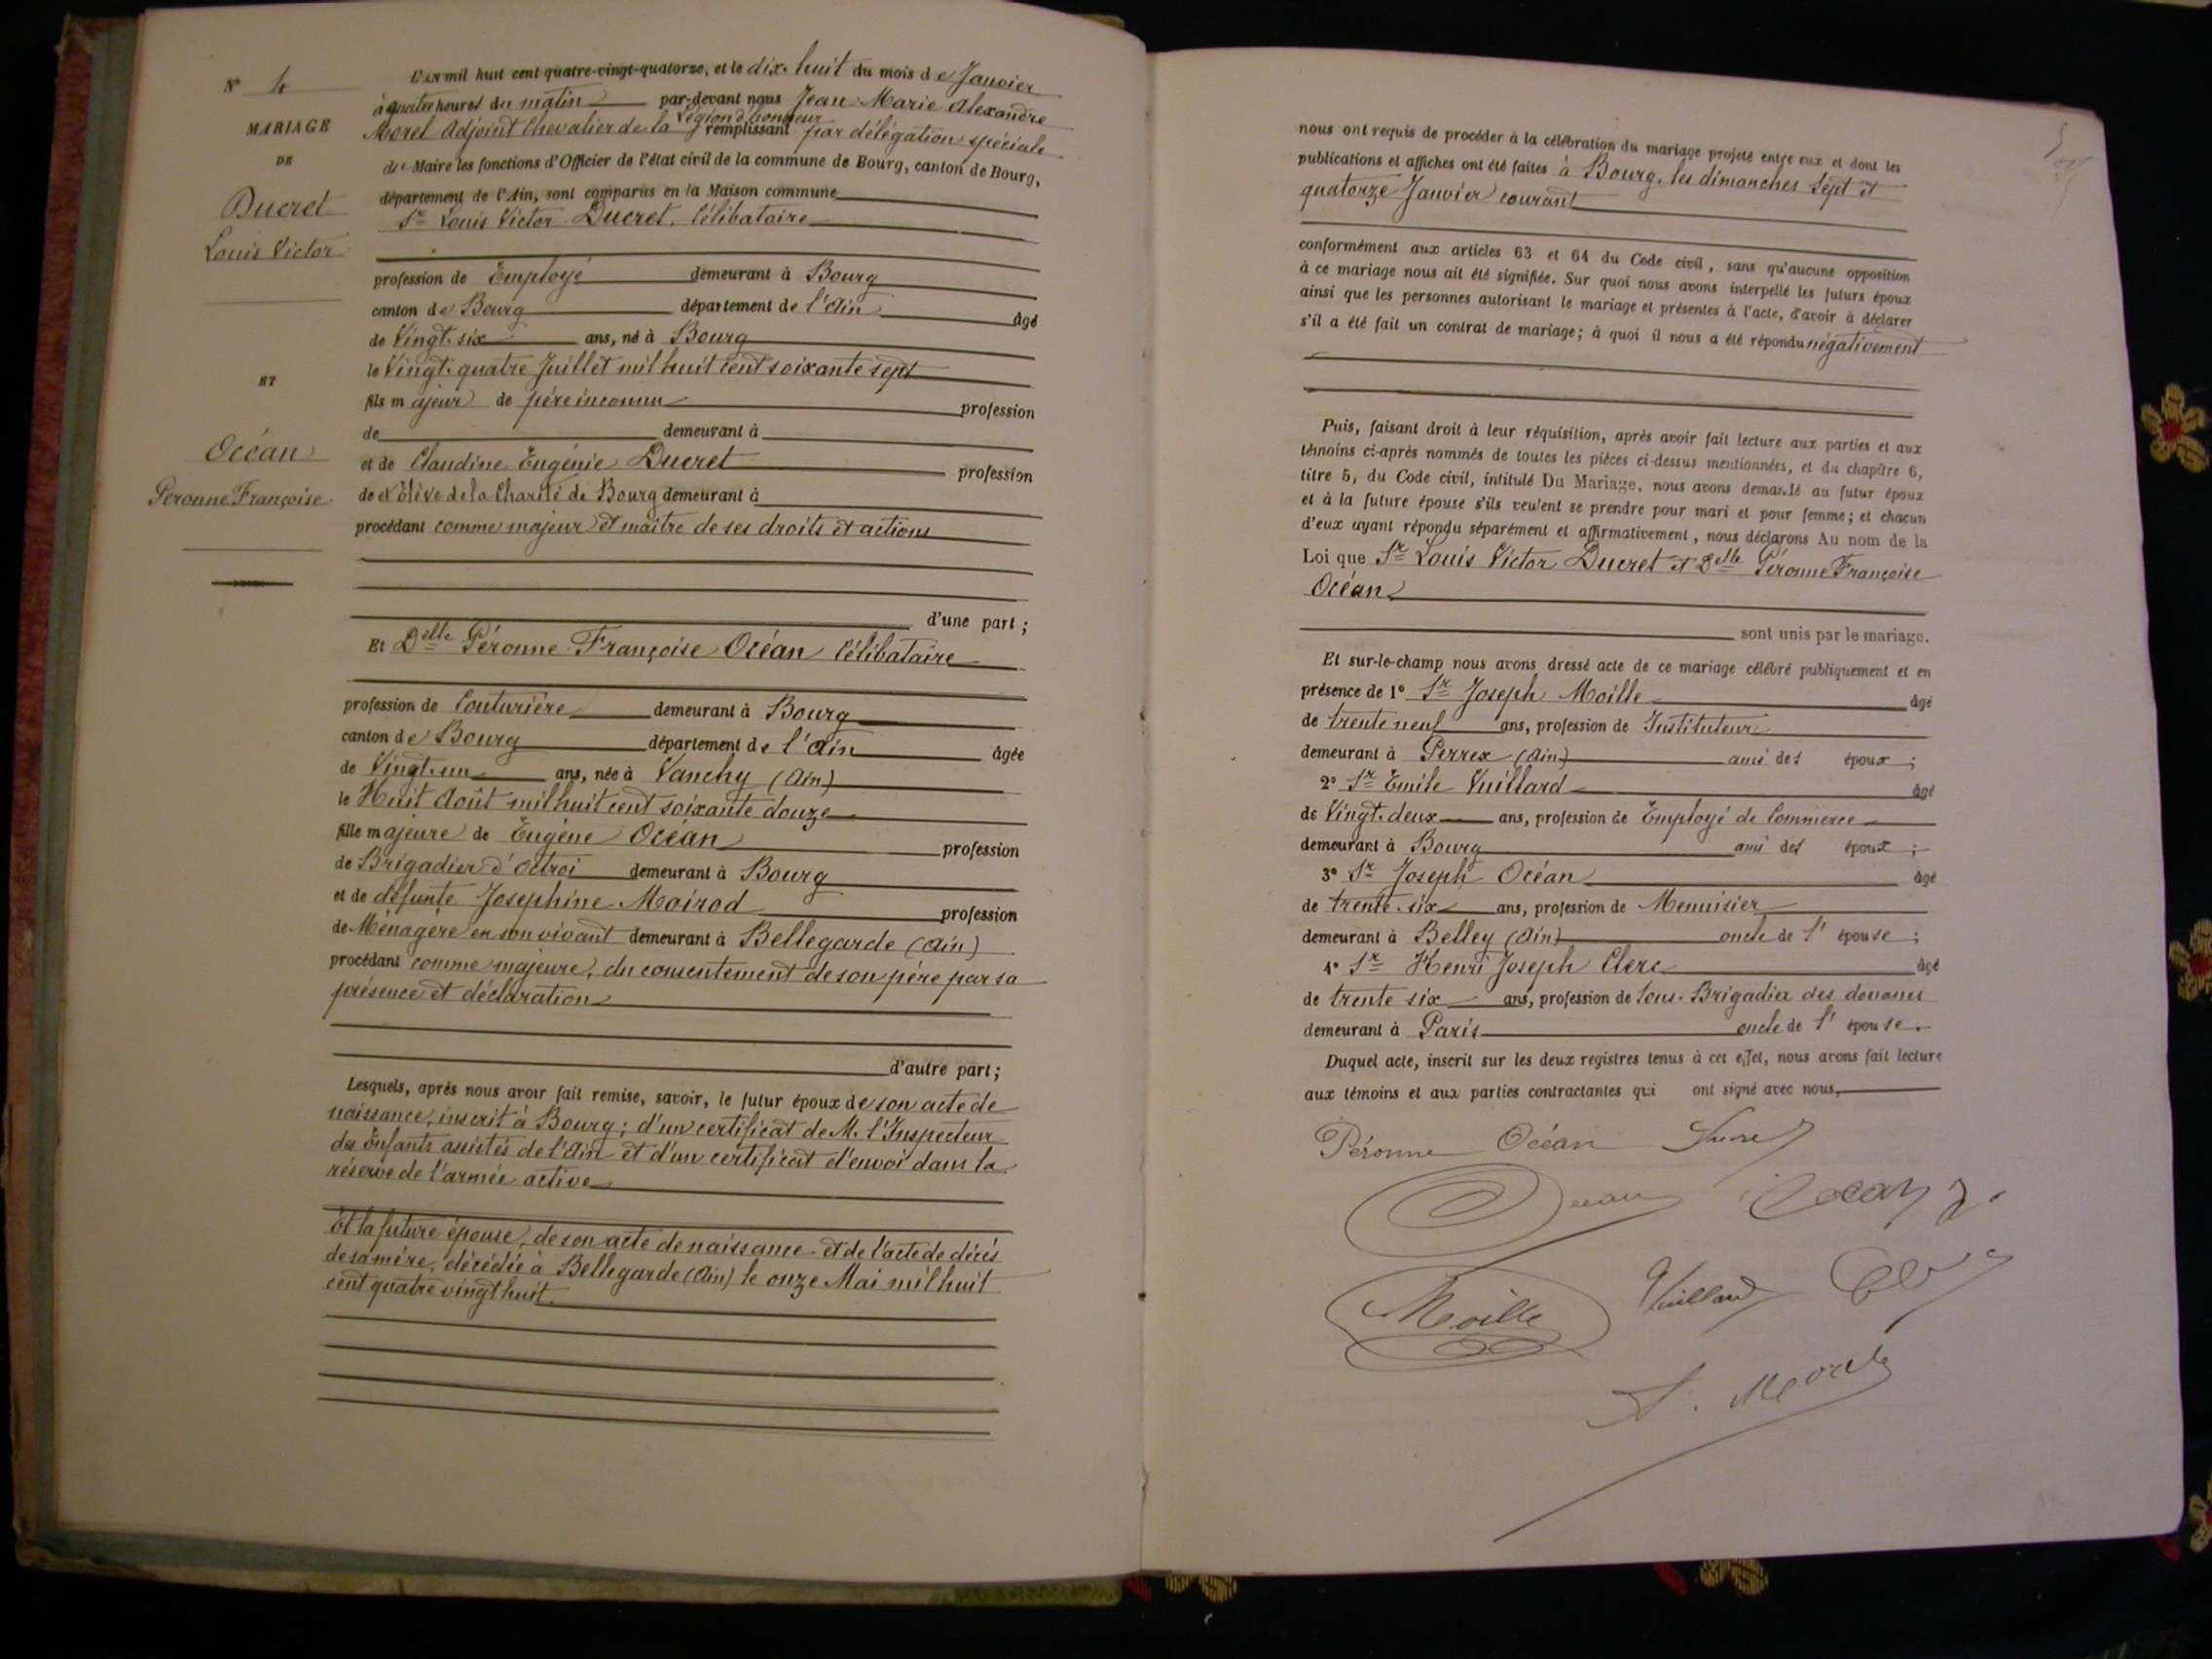 N° 4
MARIAGE
DE
Ducret
Louis Victor
ET
Océan
Péronne Françoise
L'AN mil huit cent quatre-vingt-quatorze, et le dix-huit du mois de Janvier
à quatre heures du matin par-devant nous Jean-Marie Alexandre
Morel Adjoint Chevalier de la Légion d'honneur remplissant par délégation spéciale
de Maire les fonctions d'Officier de l'état civil de la commune de Bourg, canton de Bourg,
département de l'Ain, sont comparus en la Maison commune
Sr Louis Victor Ducret, Célibataire
profession de Employé demeurant à Bourg
canton de Bourg département de l'Ain âgé
de Vingt-six ans, né à Bourg
le Vingt-quatre Juillet mil huit cent soixante sept
fils majeur de père inconnu profession
de demeurant à
et de Claudine Eugénie Ducret profession
de Elève de la Charité de Bourg demeurant à
procédant comme majeur et maître de ses droits et actions
d'une part;
Et Delle Péronne Françoise Océan Célibataire
profession de Couturière demeurant à Bourg
canton de Bourg département de l'Ain âgée
de Vingt-un ans, née à Vanchy (Ain)
le Huit Août mil huit cent soixante douze
fille majeure de Eugène Océan profession
de Brigadier d'Octroi demeurant à Bourg
et de défunte Josephine Moirod profession
de Ménagère en son vivant demeurant à Bellegarde (Ain)
procédant comme majeure, du consentement de son père par sa
présence et déclaration
d'autre part;
Lesquels, après nous avoir fait remise, savoir, le futur époux de son acte de
naissance, inscrit à Bourg; d'un certificat de M. l'Inspecteur
des Enfants assistés de l'Ain et d'un certificat d'envoi dans la
réserve de l'armée active
Et la future épouse, de son acte de naissance et de l'acte de décès
de sa mère, décédée à Bellegarde (Ain) le onze Mai mil huit
cent quatre vingt huit.
nous ont requis de procéder à la célébration du mariage projeté entre eux et dont les
publications et affiches ont été faites à Bourg, les dimanches Sept et
quatorze Janvier courant
conformément aux articles 63 et 64 du Code civil, sans qu'aucune opposition
à ce mariage nous ait été signifiée. Sur quoi nous avons interpellé les futurs époux
ainsi que les personnes autorisant le mariage et présentes à l'acte, d'avoir à déclarer
s'il a été fait un contrat de mariage; à quoi il nous a été répondu négativement
Puis, faisant droit à leur réquisition, après avoir fait lecture aux parties et aux
témoins ci-après nommés de toutes les pièces ci-dessus mentionnées, et du chapitre 6,
titre 5, du Code civil, intitulé Du Mariage, nous avons demandé au futur époux
et à la future épouse s'ils veulent se prendre pour mari et pour femme; et chacun
d'eux ayant répondu séparément et affirmativement, nous déclarons Au nom de la
Loi que Sr Louis Victor Ducret et Delle Péronne Françoise
Océan
sont unis par le mariage.
Et sur-le-champ nous avons dressé acte de ce mariage célébré publiquement et en
présence de 1° Sr Joseph Moille âgé
de trente neuf ans, profession de Instituteur
demeurant à Perrex (Ain) ami des époux;
2° Sr Emile Vuillard âgé
de Vingt-deux ans, profession de Employé de Commerce
demeurant à Bourg ami des époux;
3° Sr Joseph Océan âgé
de trente-six ans, profession de Menuisier
demeurant à Belley (Ain) oncle de l'épouse;
4° Sr Henri Joseph Clerc âgé
de trente six ans, profession de Sous-Brigadier des douanes
demeurant à Paris oncle de l'épouse.
Duquel acte, inscrit sur les deux registres tenus à cet effet, nous avons fait lecture
aux témoins et aux parties contractantes qui ont signé avec nous,
Péronne Océan Ducret
Océan Océan J.
Moille Vuillard
A. Morel